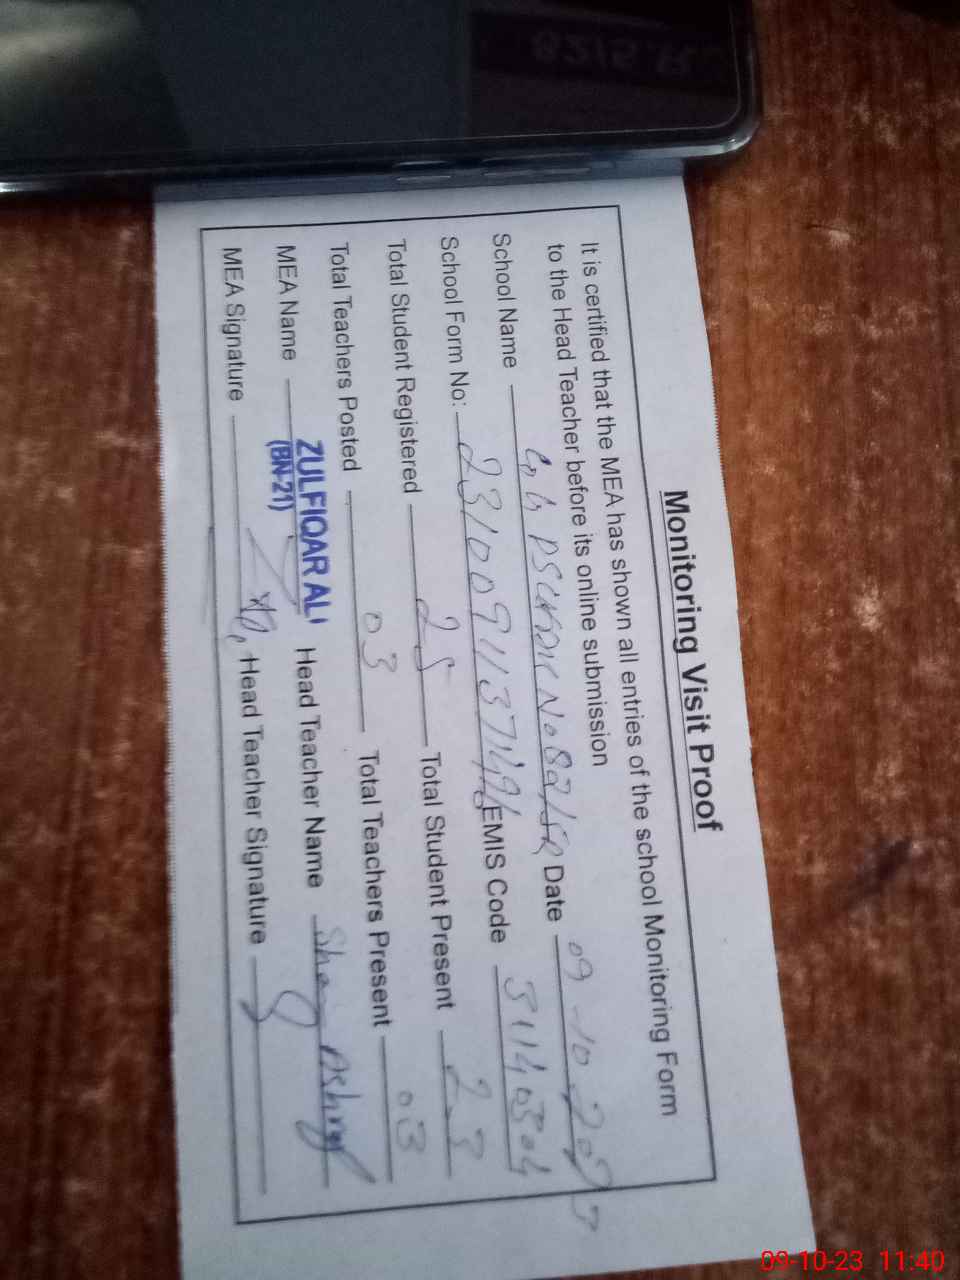 Monitoring Visit Proof
It is certified that the MEA has shown all entries of the school Monitoring Form
to the Head Teacher before its online submission
School Name No 82/5R Date 09-10-2023
School Form No: EMIS Code 31140304
Total Student Registered 25 Total Student Present 23
Total Teachers Posted 03 Total Teachers Present 03
MEA Name ZULFIQAR ALI Head Teacher Name Ashraf
(BN-21)
MEA Signature Head Teacher Signature
09-10-23 11:40